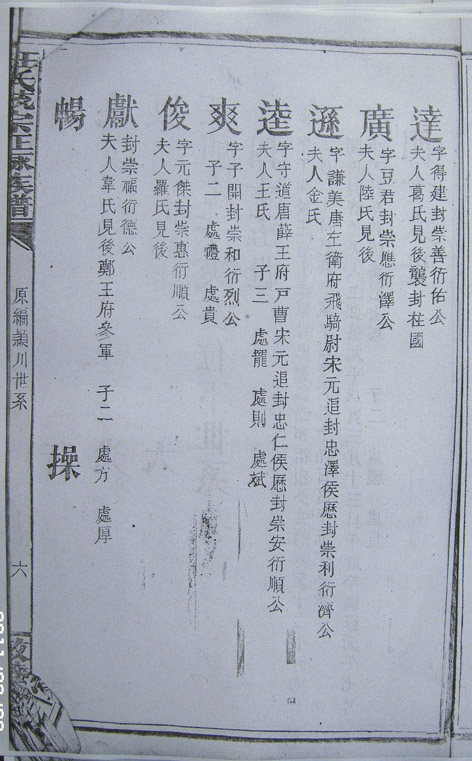 達
字得建封崇善衍佑公
夫人葛氏見後襲封柱國
廣
字豆君封崇應衍澤公
夫人陸氏見後
遜
字謙美唐左衛府飛騎尉宋元追封忠澤侯歷封崇利衍濟公
夫人金氏
逵
字守道唐薛王府戸曹宋元追封忠仁侯歷封崇安衍順公
夫人王氏 子三 處羆 處則 處斌
爽
字子開封崇和衍烈公
子二 處禮 處貴
俊
字元傑封崇惠衍順公
夫人羅氏見後
獻
封崇福衍德公
夫人韋氏見後鄭王府參軍 子二 處方 處厚
暢
操
汪氏 宗正脉族譜
原編潁川世系
六